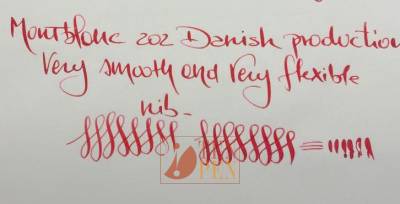 Montblanc 202 Danish production
Very smooth and very flexible
nib-
PEN